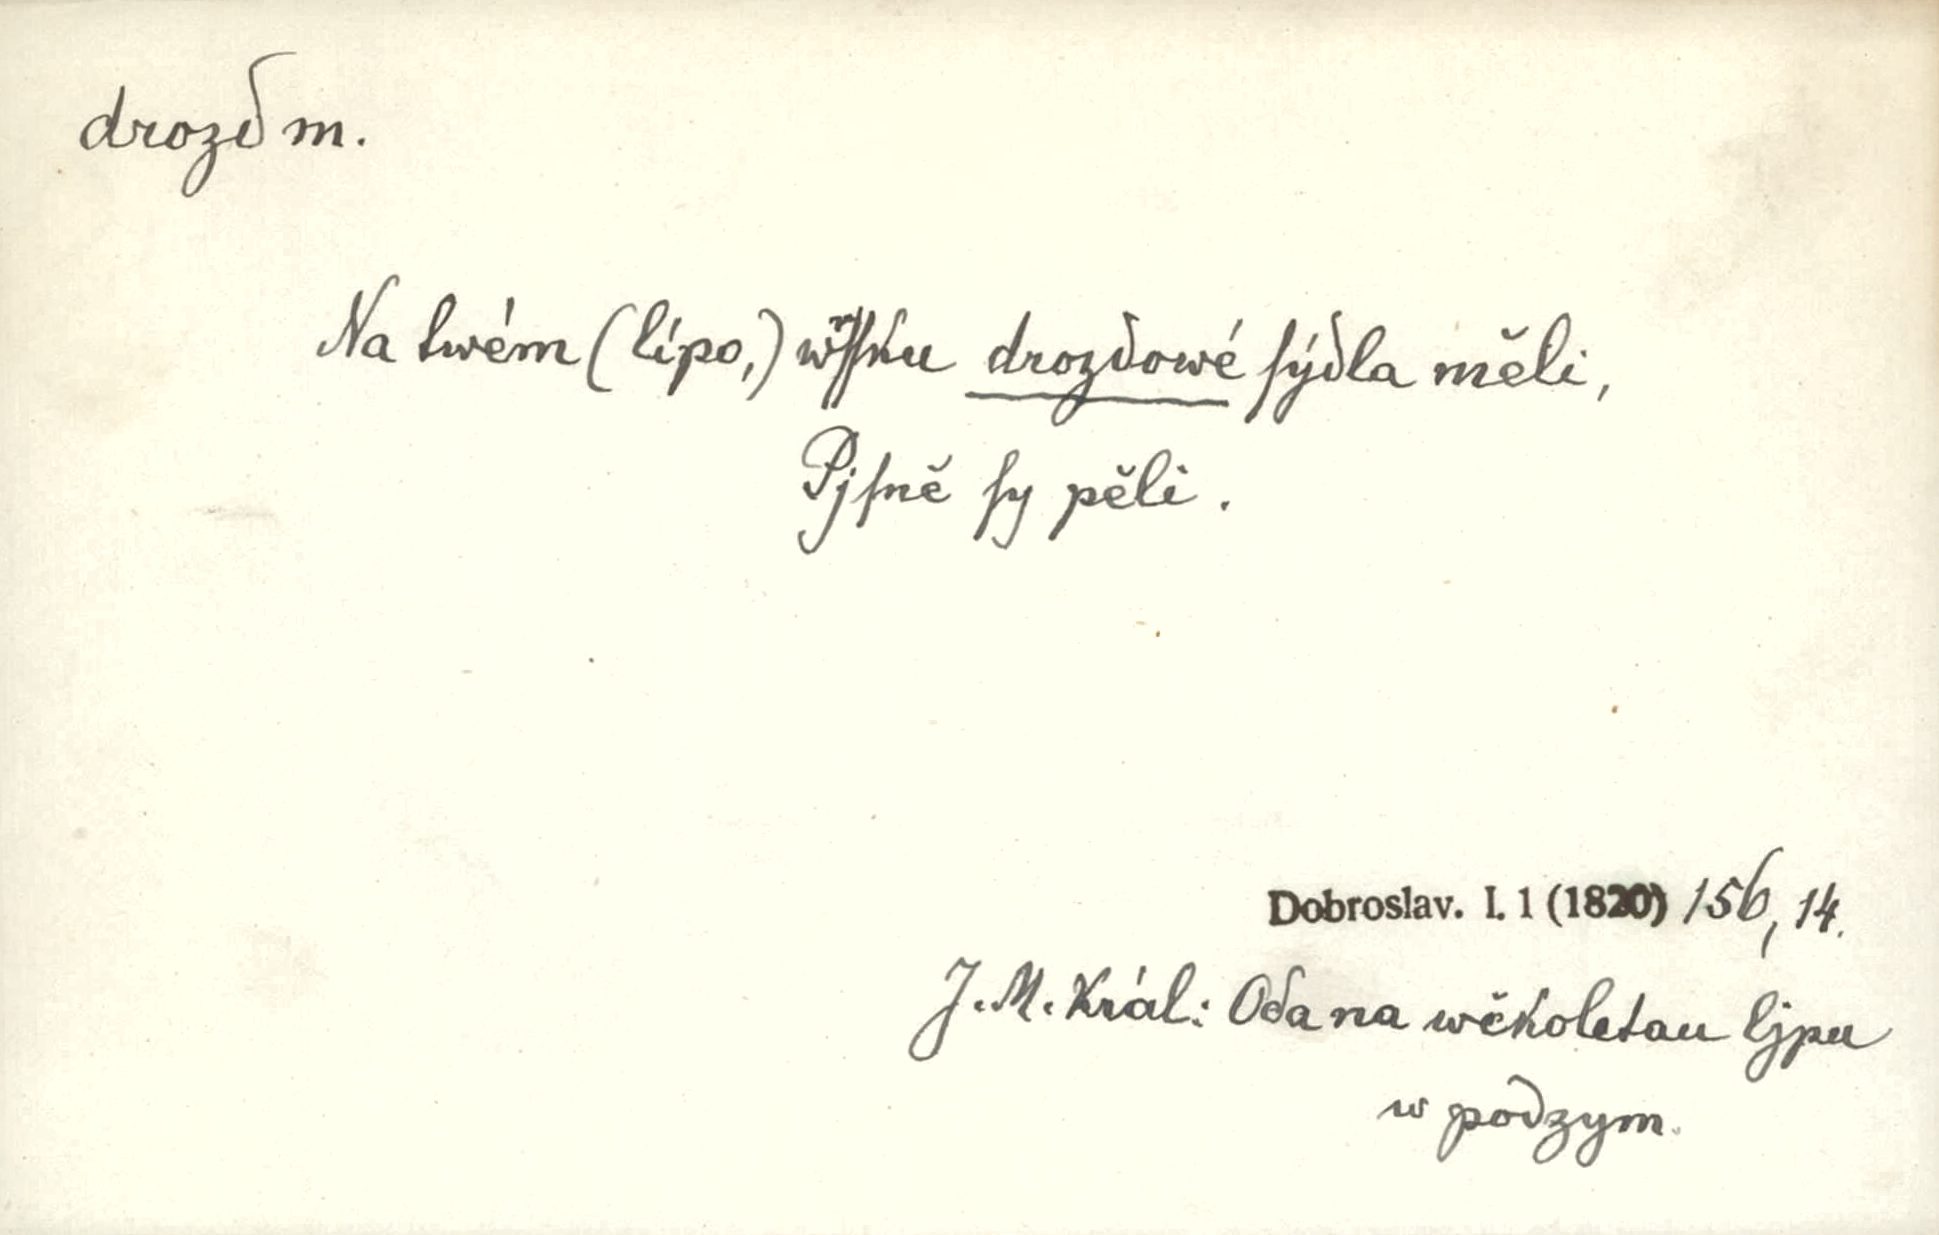 drozd m.
Na twém (lípo,) wrſſku drozdowé ſýdla měli,
Pjſně ſy pěli.
Dobroslav. I. 1 (1820) 156, 14.
J. M. Král: Oda na wěkoletau ljpu
w podzym.